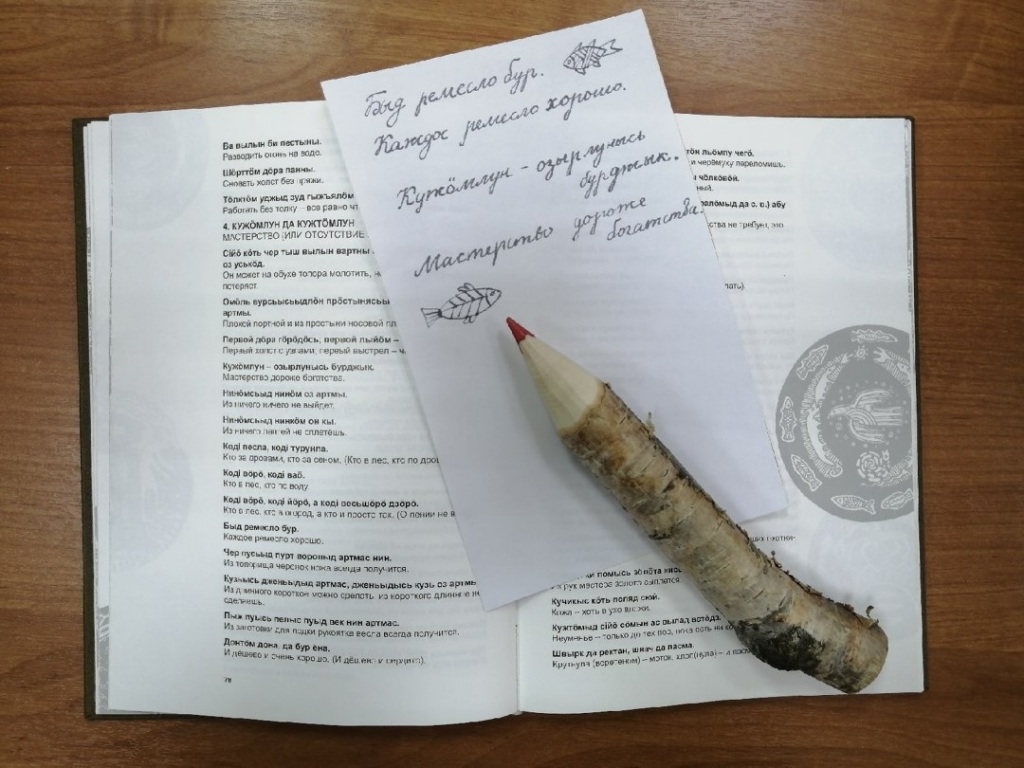 Быд ремесло бур.
Каждое ремесло хорошо.
Кужӧмлун – озырлунысь
бурджык.
Мастерство дороже
богатства.
Ва вылын би пестыны.
Разводить огонь на воде.
Шӧрттӧм дӧра панны.
Сновать холст без пряжи.
Тӧлктӧм уджыд зуд гыжъялӧм
Работать без толку – все равно
4. КУЖӦМЛУН ДА КУЖТӦМЛУН
МАСТЕРСТВО (ИЛИ ОТСУТСТВИЕ
Сійӧ кӧть чер тыш вылын вартны
оз уськӧд.
Он может на обухе топора молотить,
потеряет.
Омӧль вурсьысьыдлӧн прӧстынясьы
артмы.
Плохой портной и из простыни носовой
Первой дӧра гӧрӧдӧсь, первой лыйӧм –
Первый холст с узлами, первый выстрел –
Кужӧмлун – озырлунысь бурджык.
Мастерство дороже богатства.
Нинӧмсьыд нинӧм оз артмы.
Из ничего ничего не выйдет.
Нинӧмсьыд нинкӧм он кы.
Из ничего лаптей не сплетёшь.
Коді песла, коді турунла.
Кто за дровами, кто за сеном. (Кто в лес, кто по
Коді вӧрӧ, коді ваӧ.
Кто в лес, кто по воду
Коді вӧрӧ, коді йӧрӧ, а коді весьшӧрӧ дзӧрӧ.
Кто в лес, кто в огород, а кто и просто так. (О пении не в
Быд ремесло бур.
Каждое ремесло хорошо.
Чер пусьыд пурт воропыд артмас нин.
Из топорища черенок ножа всегда получится.
Кузьысь дженьыдыд артмас, дженьыдысь кузь оз артмы
Из длинного короткое можно сделать, из короткого длинное не
сделаешь.
Пыж пуысь пелыс пуыд век нин артмас.
Из заготовки для лодки рукоятка весла всегда получится.
Донтӧм дона, да бур ёна.
И дёшево и очень хорошо. (И дёшево и сердито).
78
льӧмпу чегӧ.
и черёмуху переломишь.
чӧлковӧй.
абу
не требует, это
помысь зӧлӧта
рук мастера золото сыплется
Кучикыс кӧть пеляд сюй.
Кожа – хоть в ухо вложи.
Кужтӧмыд сійӧ сӧмын
Неуменье – только до тех пор, пока есть
Швырк да ректан, швач да пасма.
Крутнула (веретеном) – моток, хлоп(нула) –